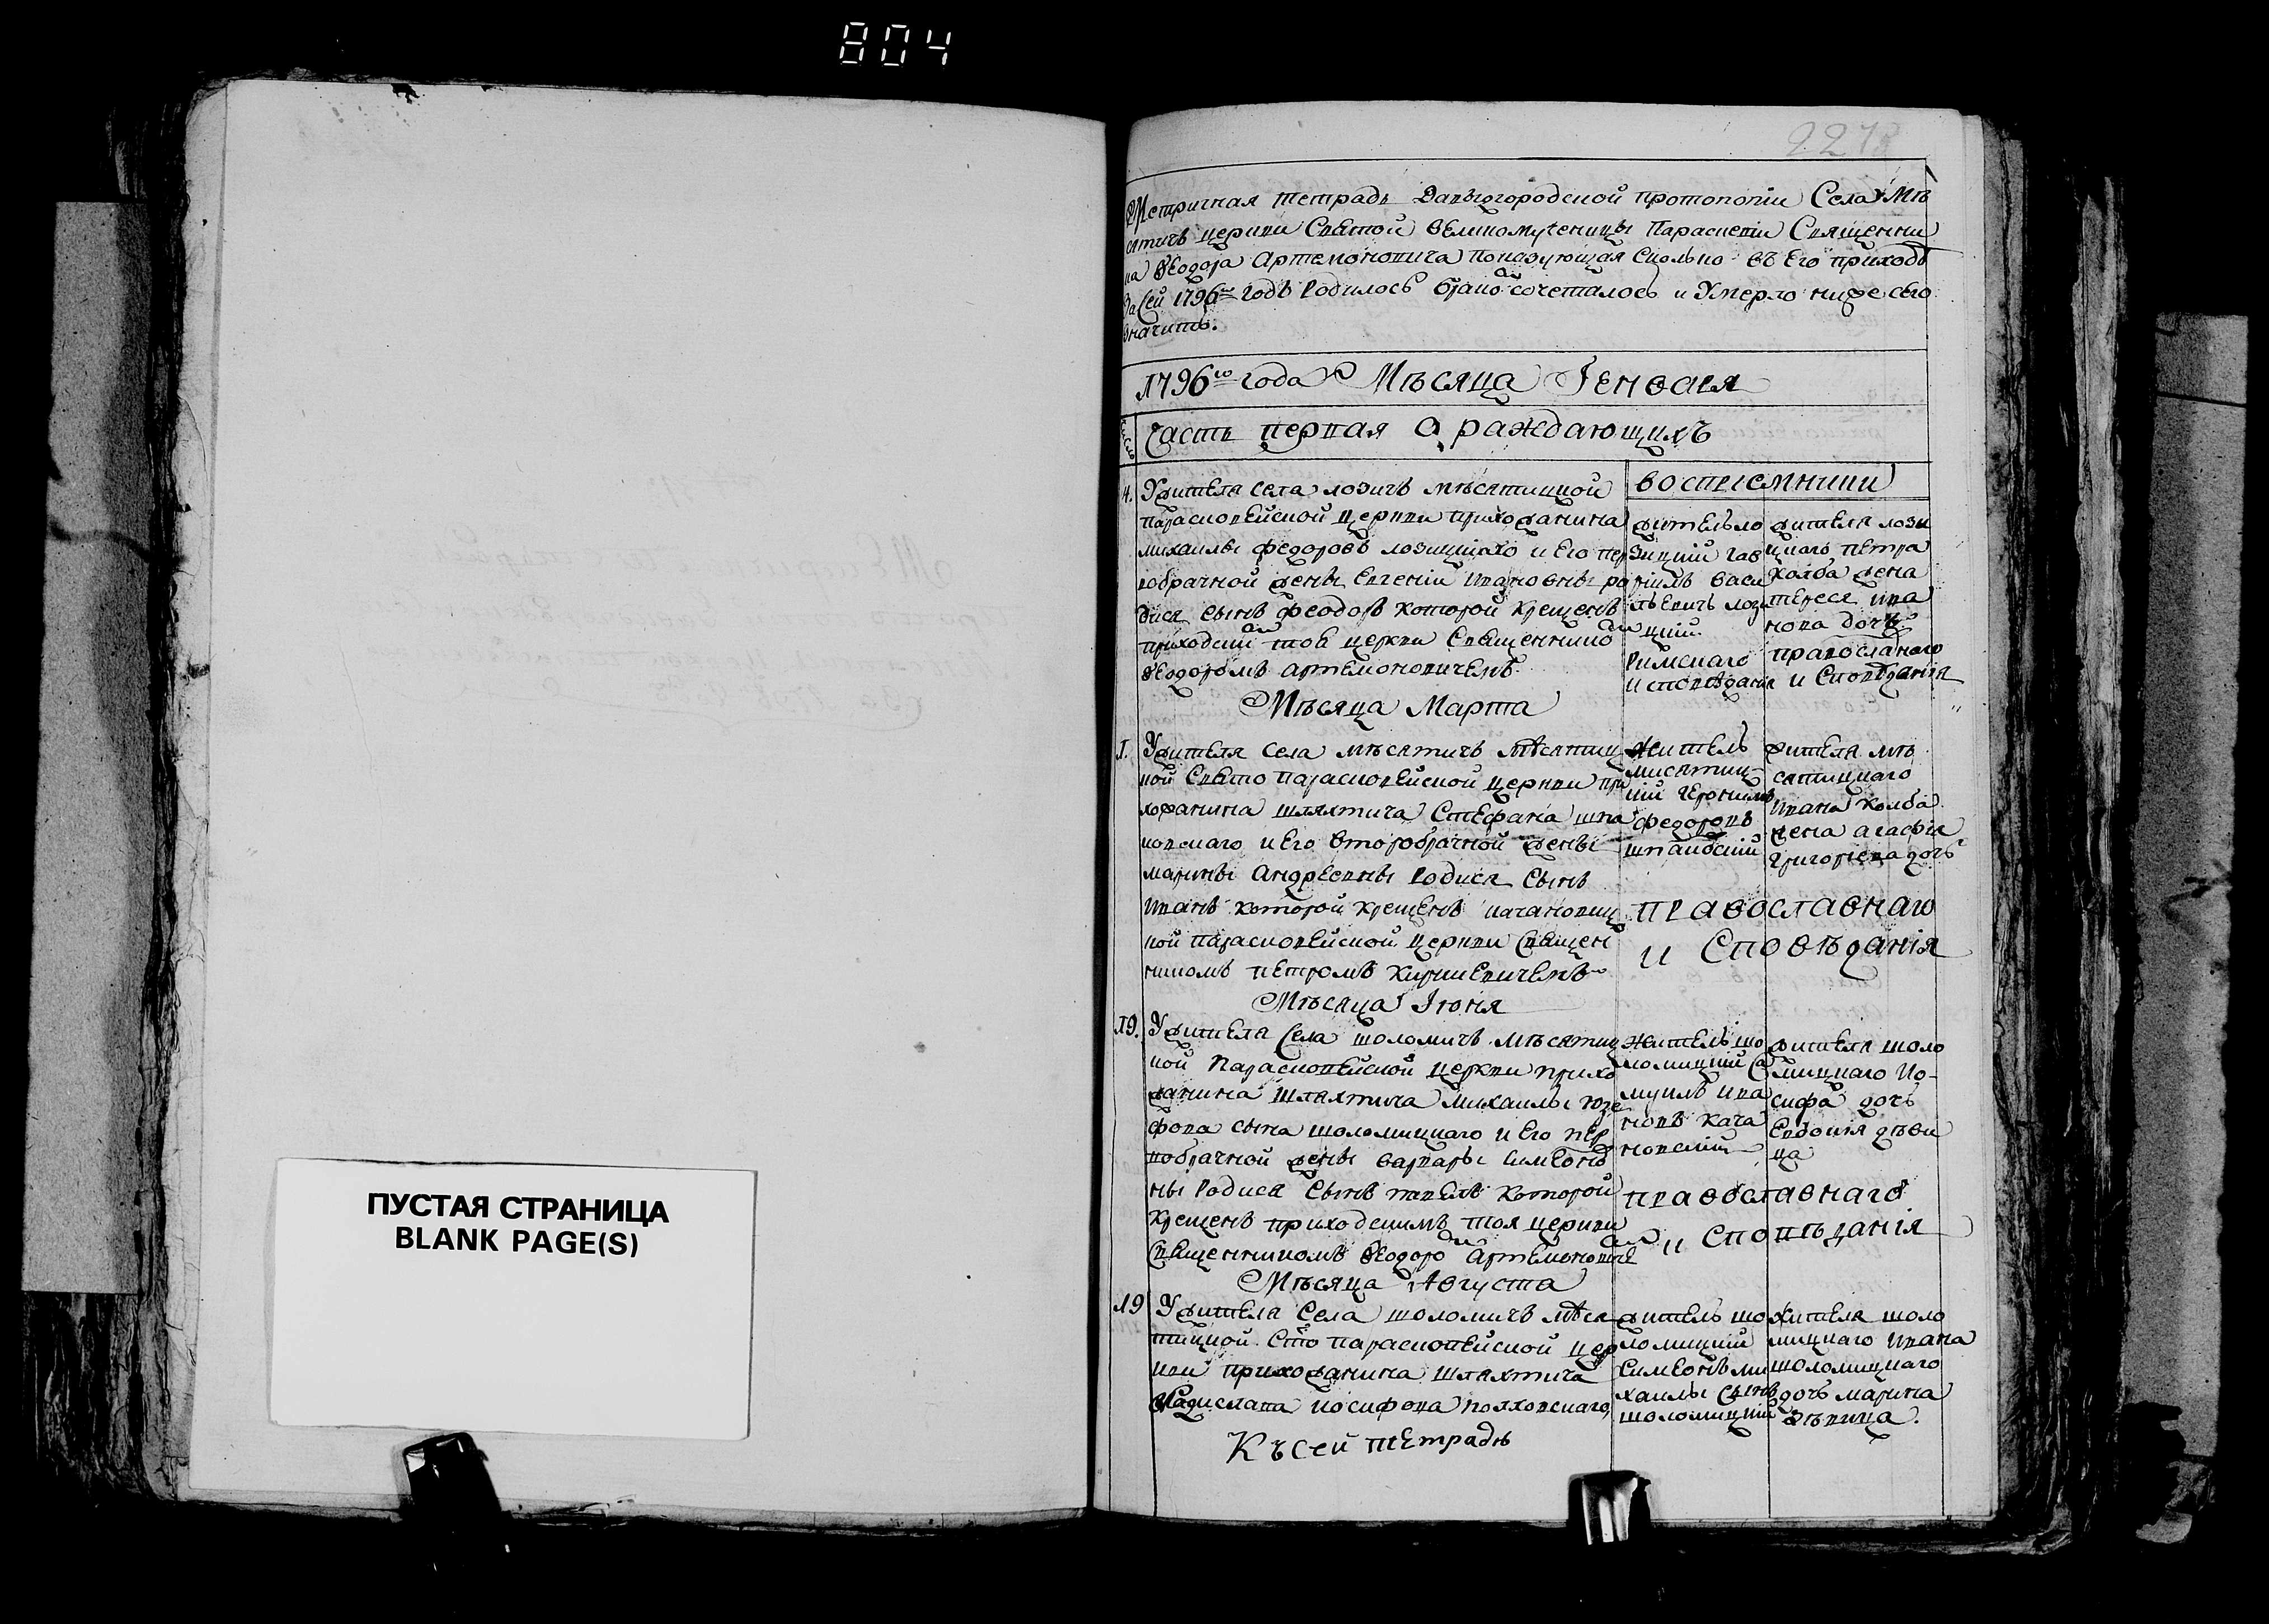 804
2273
Метричная тетрадь Давыдгородской протопопіи Села Мѣ
сятичъ церкви Святой великомученицы Параскевіи Священни
ка Ѳеодора Артемоновича показующая сколько въ Его приходѣ
За Сей 1796й годъ Родилось бракосочеталось и Умерло ниже сего
значитъ.
1796го года Мѣсяца Генваря
число
Часть первая о раждающихъ
4. Ужителя села лозичъ мѣсятицкой
парасковейской церкви прихожанина
михаилы федорова лозицкаго и Его пер
вобрачной жены Евгеніи Ивановны ро
дися сынъ Феодоръ которой крещенъ
приходскимъ тоя церкви Священникомъ
Ѳеодоромъ артемоновичемъ
воспріемники
житель ло
зицкій гав
ріилъ васи
льевичъ лози
цкій
Римскаго
исповѣданія
жителя лози
цкаго петра
холба жена
тереса ива
нова дочь
православнаго
и Сповѣданія
Мѣсяца Марта
1. Ужителя села мѣсятичъ мѣсятиц
кой Свято парасковейской церкви при
хожанина шляхтича Стефана шпа
ковскаго и Его второбрачной жены
марины андреевны Родися Сынъ
Иванъ которой крещенъ качановиц
кой парасковейской церкви Священ
никомъ петромъ
житель
мисятиц
кій Іеронимъ
федоровъ
шпаковскій
жителя мѣ
сятицкаго
ивана холба
жена агафія
григорьева дочь
православнаго
и Сповѣданія
Мѣсяца Іюня
19. Ужителя Села шоломичъ мѣсятиц
кой Парасковейской церкви прихо
жанина шляхтича михаилы юзе
фова сына шоломицкаго и Его пер
вобрачной жены варвары симеонов
ны Родися Сынъ павелъ которой
крещенъ приходскимъ тоя церкви
Священникомъ Ѳеодоромъ Артемоновиче
житель шо
ломицкій са
муилъ ива
новъ кача
новскій
жителя шоло
мицкаго Ио-
сифа дочь
Евдокія дѣви
ца
православнаго
и Сповѣданія
Мѣсяца Августа
19 Ужителя Села шоломичъ мѣся
тицкой Сто параскопейской цер
кви прихожанина шляхтича
Владислава иосифова поляховскаго
житель шо
ломицкій
Симеонъ ми
хаилы сынъ
шоломицкій
жителя шоло
мицкаго ивана
шоломицкаго
дочь марина
дѣвица.
Къ сей тетрадѣ
ПУСТАЯ СТРАНИЦА
BLANK PAGE(S)